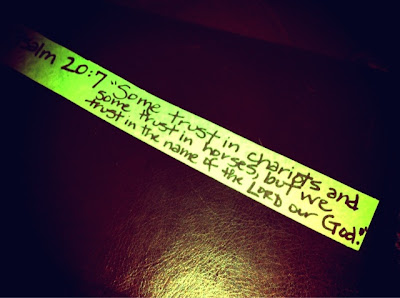 salm 20:7 "Some trust in chariots and
some trust in horses, but we
trust in the name of the LORD our God."